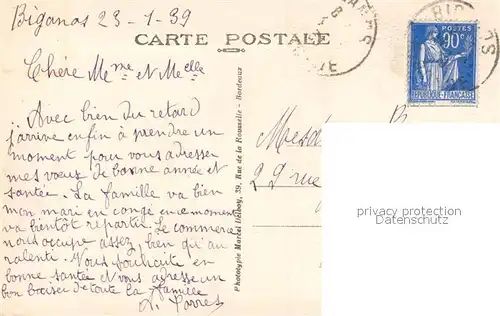 Biganos 23-1-39
CARTE POSTALE
Chère Mme et Melle
Avec bien du retard
j'arrive enfin à prendre un
moment pour vous adresser
mes vœux de bonne année et
santée. La famille va bien
mon mari en congé en ce moment
va bientôt repartir. Le commerce
nous occupe assez, bien qu'au
ralenti. Nous souhaite en
bonne santée et vous adresse un
bon baiser de toute la famille
Phototypie Marcel Delboy, 39, Rue de la Rousselle - Bordeaux
POSTES
90c
REPUBLIQUE FRANÇAISE
22 rue
privacy protection
Datenschutz